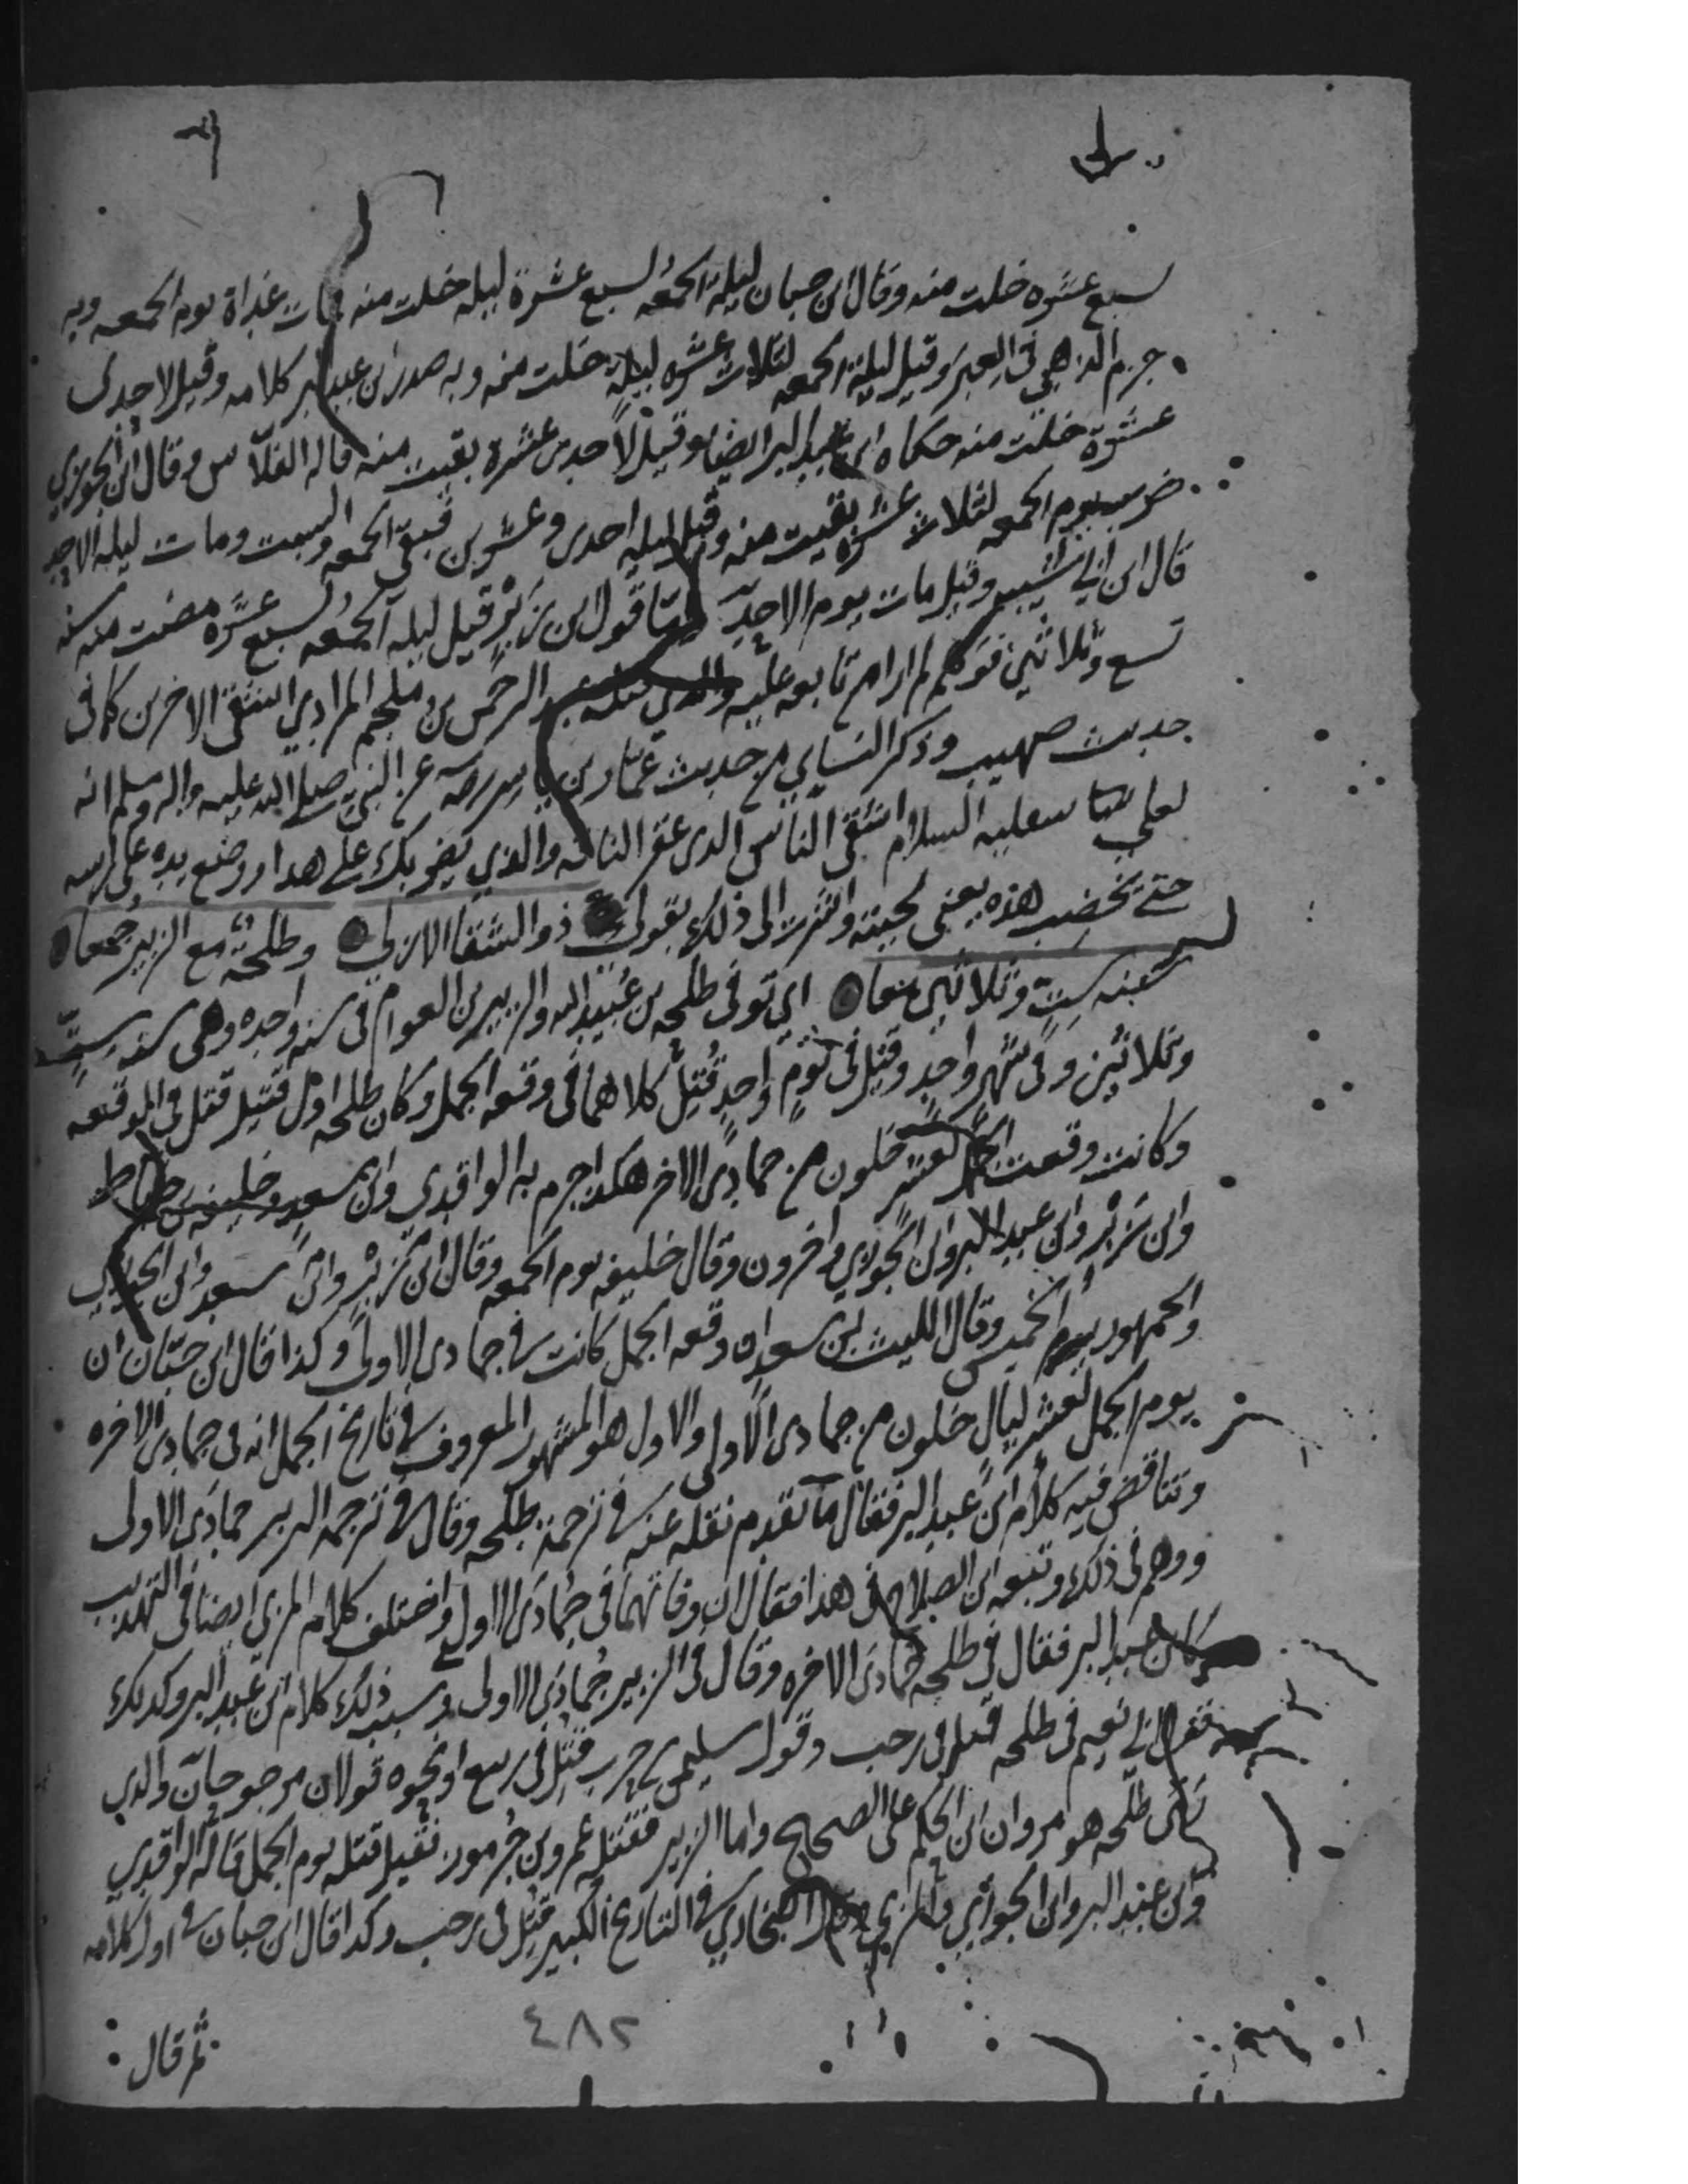 لسبع عشره خلت منه وقال ابن حبان ليلة الجمعه لسبع عشرة ليله خلت منه فمات غداة يوم الجمعه وبه
جزم الذهبي في العبر وقيل ليلة الجمعه لثلاث عشره ليلة خلت منه وبه صدر ابن عبد البر كلامه وقيل لاحدى
عشرة خلت منه حكاه ابن عبد البر ايضا وقيل لاحدى عشرة بقيت منه قاله الفلاس وقال ابن الجوزي
ضرب يوم الجمعه لثلاث عشره بقيت منه وقيل ليله احدى وعشرين فبقي الجمعه والسبت ومات ليله الاحد
قال ابن ابي شيبه وقيل مات يوم الاحد واما قول ابن زبر قتل ليله الجمعه لسبع عشره مضت منه سنه
تسع وثلاثين فوهم لم ار من تابعه عليه والذي قتله عبد الرحمن بن ملجم المرادي اشقى الاخرين كما في
حديث صهيب وذكر النساي من حديث عمار بن ياسر رضه عن النبي صلى الله عليه واله وسلم انه
لعلي عليه السلام اشقى الناس الذي عقر الناقه والذي يضربك على هذا ووضع يده على راسه
حتى تخضب هذه يعني لحيته واشرت الى ذلك بقولي ذو الشقا الازلي وطلحة مع الزبير جمعا
سنه ست وثلاثين معا اي توفي طلحه بن عبيد الله والزبير بن العوام في سنه واحده وهي سنه ست
وثلاثين وفي شهر واحد وقيل في يوم واحد قتل كلاهما في وقعه الجمل وكان طلحه اول قتيل قتل في الموقعه
وكانت وقعت الجمل لعشر خلون من جمادى الاخر هكذا جزم به الواقدي وابن سعد وخليفه بن خياط
وابن زبر وابن عبد البر وابن الجوزي واخرون وقال خليفه يوم الجمعه وقال ابن زبر وابن سعد وابن الجوزي
والجمهور يوم الخميس وقال الليث بن سعد ان وقعه الجمل كانت في جمادى الاولى وكذا قال ابن حبان ان
يوم الجمل لعشر ليال خلون من جمادى الاولى والاول هو المشهور المعروف في تاريخ الجمل انه في جمادى الاخره
وتناقض فيه كلام ابن عبد البر فقال ما تقدم نقله عنه في ترجمة طلحه وقال في ترجمه الزبير جمادى الاولى
ووهم في ذلك وتبعه ابن الصلاح في هذا فقال ان وفاتهما في جمادى الاولى واختلف كلام المزي ايضا في التهذيب
كابن عبد البر فقال في طلحه جمادى الاخره وقال في الزبير جمادى الاولى وسبب ذلك كلام ابن عبد البر وكذلك
فقول ابي نعيم في طلحه قتل في رجب وقول سليمن بن حرب قتل في ربيع او نحوه قولان مرجوحان والذي
طلحه هو مروان ابن الحكم على الصحيح واما الزبير فقتله عمرو بن جرموز فقيل قتله يوم الجمل قاله الواقدي
وابن عبد البر وابن الجوزي والمزي وقال البخاري في التاريخ الكبير قتل في رجب وكذا قال ابن حبان في اول كلامه
ثم قال
٤٨٢